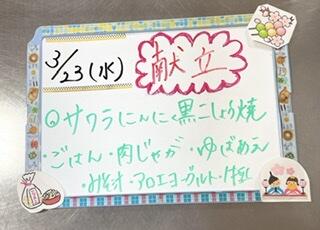 3/23(水) 献立
◎サワラにんにく黒こしょう焼
・ごはん・肉じゃが・ゆばあえ
・みそ汁・アロエヨーグルト・牛乳